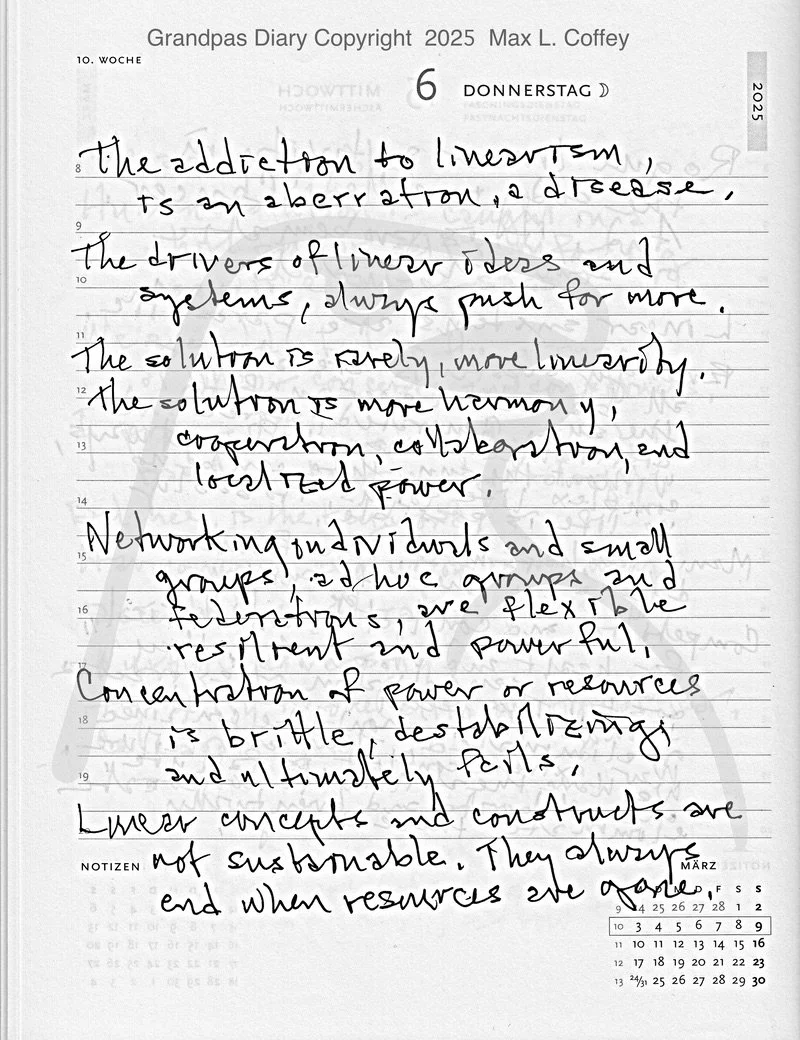 Grandpas Diary Copyright 2025 Max L. Coffey
10. WOCHE
6 DONNERSTAG
2025
8 The addiction to linearism,
is an aberration, a disease.
9
The drivers of linear ideas and
10
systems, always push for more.
11
The solution is rarely, more linearity.
12 The solution is more harmony,
13 cooperation, collaboration, and
localized power.
14
Networking individuals and small
15
groups, ad hoc groups and
16 federations, are flexible
resilient and powerful.
17
Concentration of power or resources
18
is brittle, destabilizing,
19 and ultimately fails.
Linear concepts and constructs are
NOTIZEN not sustainable. They always
MÄRZ
end when resources are gone.
D M D F S S
9 24 25 26 27 28 1 2
10 3 4 5 6 7 8 9
11 10 11 12 13 14 15 16
12 17 18 19 20 21 22 23
13 24/31 25 26 27 28 29 30